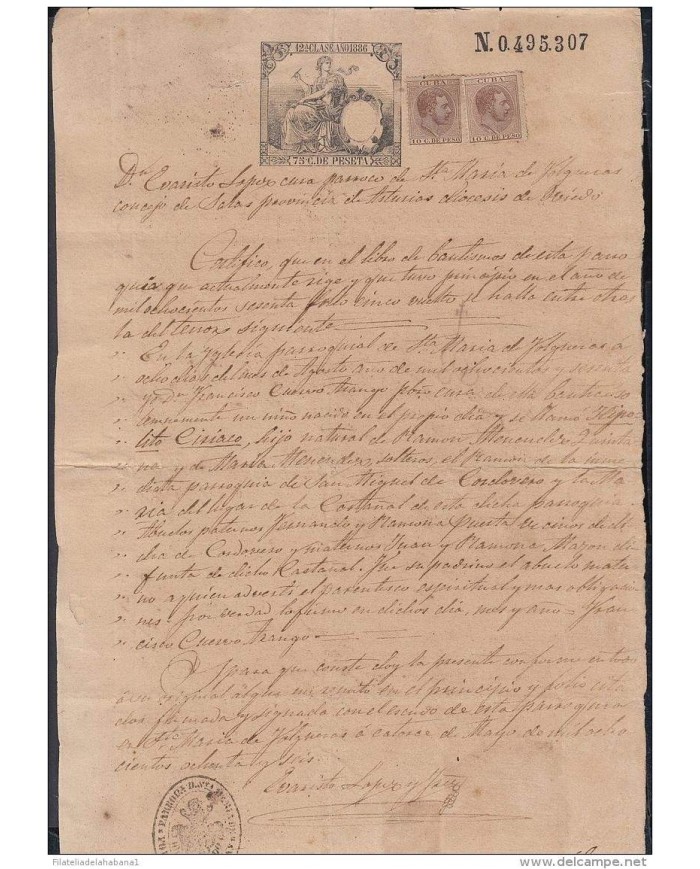 12ª CLASE AÑO 1886
N.0.495.307
CUBA CUBA
10 C. DE PESO 10 C. DE PESO
75 C. DE PESETA
Dn Evaristo Lopez cura parroco de Sta Maria de Folgueras
concejo de Salas provincia de Asturias diocesis de Oviedo
Certifico, que en el libro de bautismos de esta parro
quia que actualmente rige y que tuvo principio en el año de
mil ochocientos sesenta folio cinco vuelto se halla entre otras
la del tenor siguiente
En la Yglesia parroquial de Sta Maria de Folgueras a
ocho dias del mes de Agosto año de mil ochocientos y sesenta
yo Dn Francisco Cuervo Arango cura de esta bautice so
lemnemente un niño nacido en el propio dia y se llamo Hipo
lito Ciriaco, hijo natural de Ramon Menendez
na y de Maria Menendez, solteros, el Ramon de la
parroquia de San Miguel de Cordovero y la Ma
ria del lugar de la Castañal de esta dicha parroquia
Abuelos paternos Fernando y Ramona vecinos de di
cha de Cordovero y maternos Juan y Ramona di
funta de dicho Castañal. Fue su padrino el abuelo mater
no a quien adverti el parentesco espiritual y mas obligacio
nes por verdad lo firmo en dichos dia, mes y año = Fran
cisco Cuervo Arango
Y para que conste doy la presente conforme en todo
a su original al que me remito en el principio y folio cita
dos firmada y signada con el escudo de esta parroquia
en Sta Maria de Folgueras a catorce de Mayo de mil ocho
cientos ochenta y seis
Evaristo Lopez y
PARROQUIA D. STA MARIA DE
Filateliadelahabana1
delcampe.net